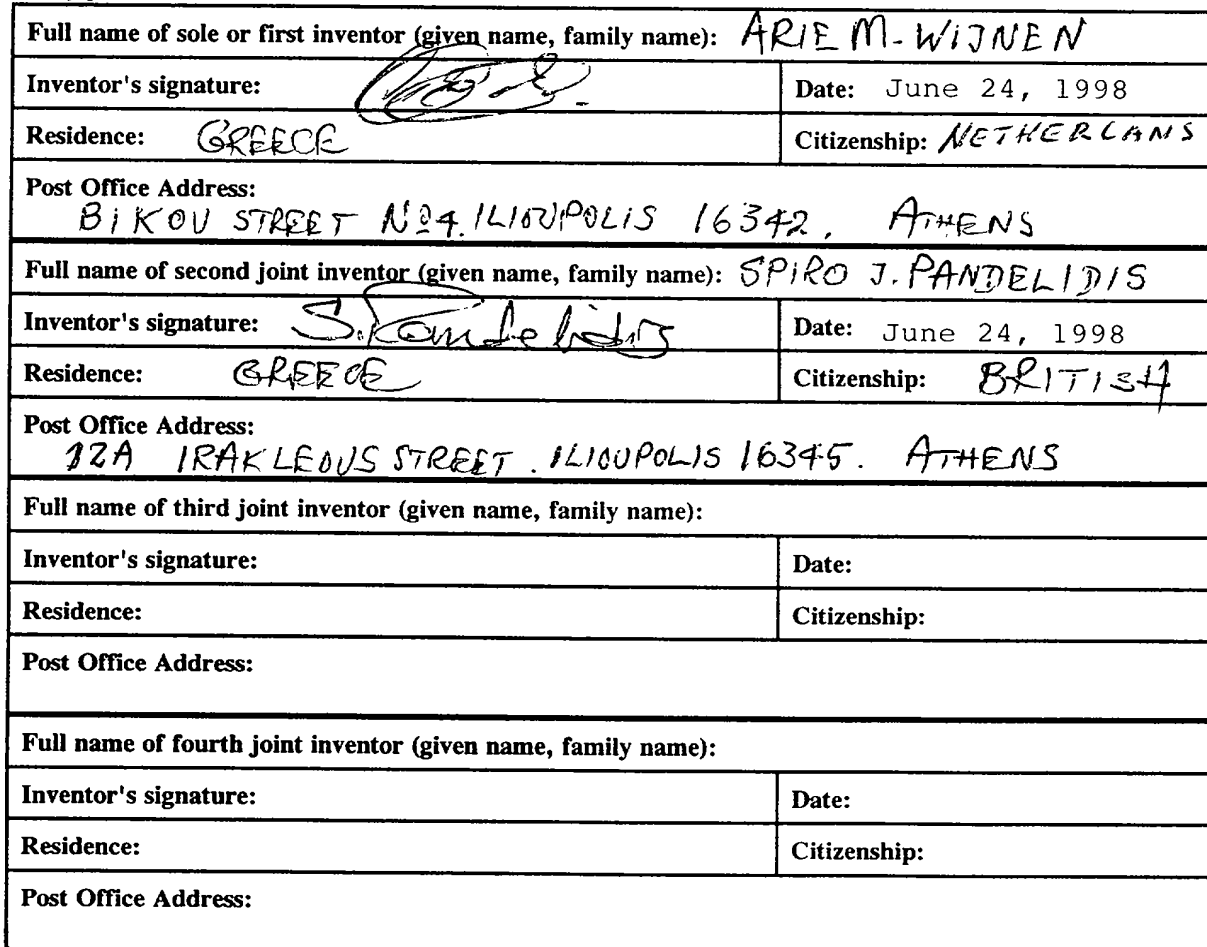 Full name of sole or first inventor (given name, family name): ARIE M. WIJNEN
Inventor's signature: Date: June 24, 1998
Residence: GREECE Citizenship: NETHERLANS
Post Office Address:
BIKOU STREET Nº4. ILIOUPOLIS 16342. ATHENS
Full name of second joint inventor (given name, family name): SPIRO J. PANDELIDIS
Inventor's signature: S. Pandelidis Date: June 24, 1998
Residence: GREECE Citizenship: BRITISH
Post Office Address:
12A IRAKLEOUS STREET. ILIOUPOLIS 16345. ATHENS
Full name of third joint inventor (given name, family name):
Inventor's signature: Date:
Residence: Citizenship:
Post Office Address:
Full name of fourth joint inventor (given name, family name):
Inventor's signature: Date:
Residence: Citizenship:
Post Office Address: